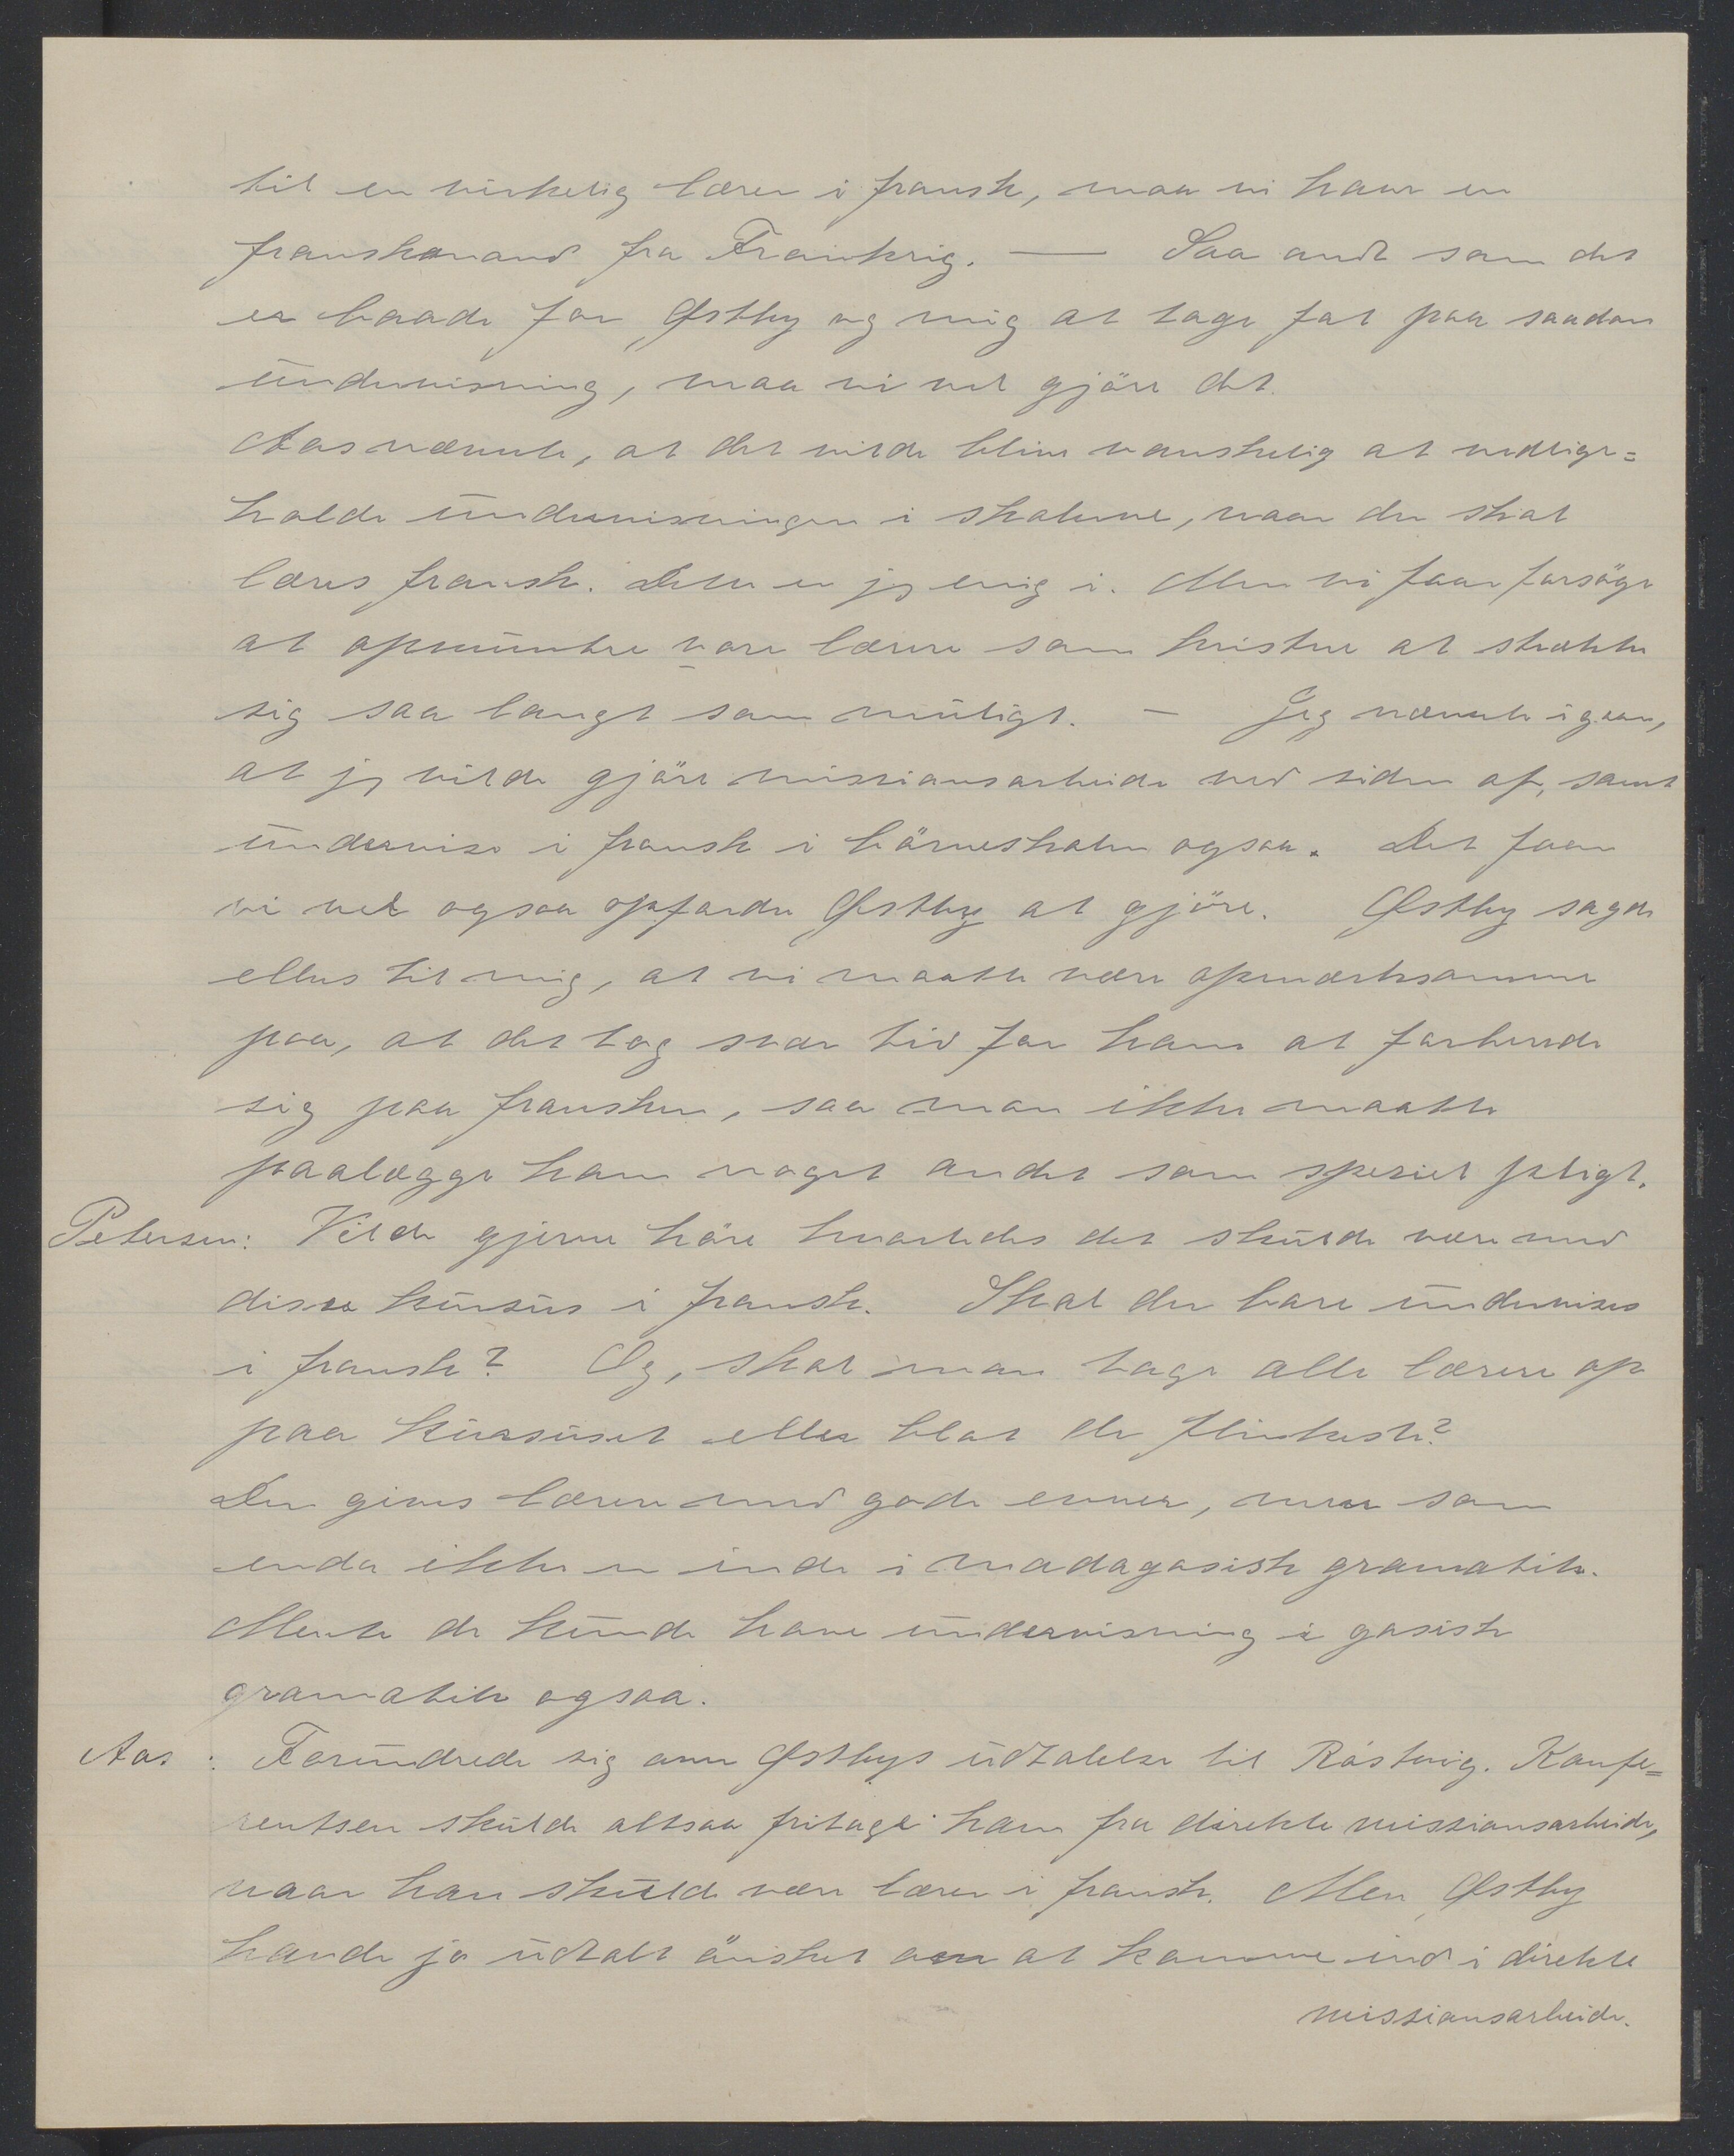 til en virkelig lærer i fransk, maa vi have en
franskmand fra Frankrig. — Saa ondt som det
er baade for Østby og mig at tage fat paa saadan
undervisning, maa vi vel gjöre det.
Aas nævnte, at det vilde blive vanskelig at vedlige=
holde undervisningen i skolerne, naar der skal
læres fransk. Dette er jeg enig i. Men vi faar forsöge
at opmuntre vore lærere som kristne at strække
sig saa langt som muligt. — Jeg nævnte igaar,
at jeg vilde gjöre missionsarbeide ved siden af, samt
undervise i fransk i börneskolen ogsaa. Det faar
vi vel ogsaa opfordre Østby at gjöre. Østby sagde
ellers til mig, at vi maatte være opmærksomme
paa, at det tog svær tid for ham at forberede
sig paa fransken, saa man ikke maatte
paalægge ham noget andet som speciel pligt.
Petersen: Vilde gjerne höre hvorledes det skulde være med
disse kursus i fransk. Skal der bare undervises
i fransk? Og, skal man tage alle lærere op
paa kursuset eller blot de flinkeste?
Der gives lærere med gode evner, men som
enda ikke er inde i madagasisk gramatik.
Mente de kunde have undervisning i gasisk
gramatik ogsaa.
Aas: Forundrede sig over Østbys udtalelse til Röstvig. Konfe=
rentsen skulde altsaa fritage ham fra direkte missionsarbeide,
naar han skulde være lærer i fransk. Men Østby
havde jo udtalt önsket om at komme ind i direkte
missionsarbeide.